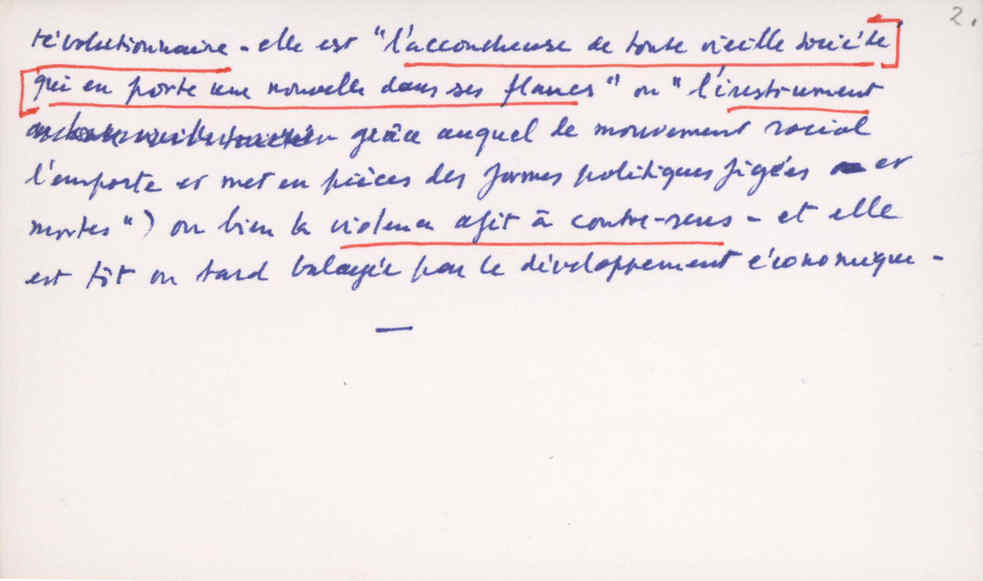 2.
révolutionnaire - elle est "l'accoucheuse de toute vieille société
qui en porte une nouvelle dans ses flancs" ou "l'instrument
grâce auquel le mouvement social
l'emporte et met en pièces des formes politiques figées et
mortes") ou bien la violence agit à contre-sens - et elle
est tôt ou tard balayée par le développement économique -